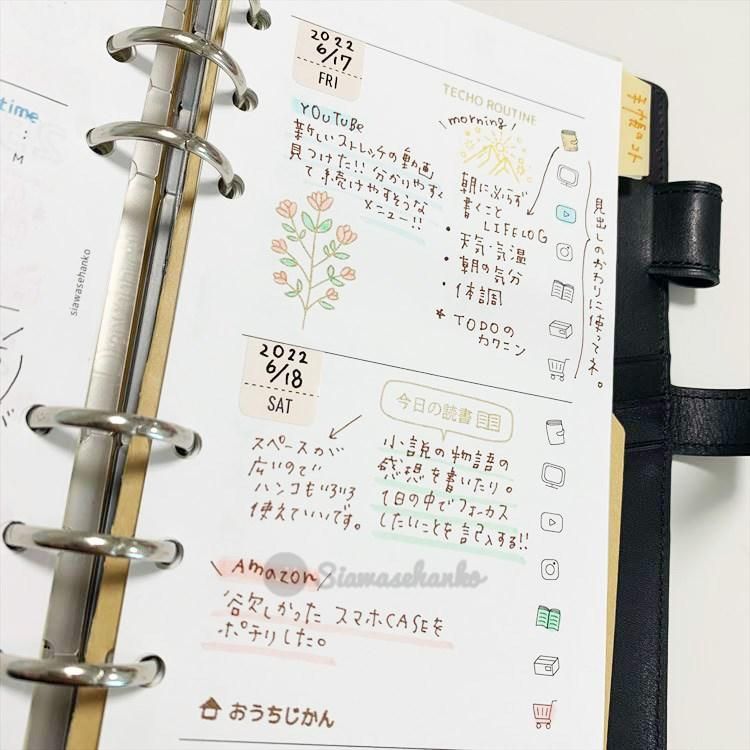 time
:
M
siawasehanko
2022
6/17
FRI
TECHO ROUTINE
YOUTUBE
新しいストレッチの動画
見つけた!! 分かりやすく
て続けやすそうな
メニュー!!
\morning/
朝に必らず
書くこと
LIFELOG
・天気・気温
・朝の気分
・体調
* TODOの
カクニン
見出しのかわりに使ってネ。
2022
6/18
SAT
スペースが
広いので
ハンコもいろいろ
使えていいです。
今日の読書
小説の物語の
感想を書いたり。
1日の中でフォーカス
したいことを記入する!!
\Amazon/
Siawasehanko
欲しかった スマホCASEを
ポチりした。
おうちじかん